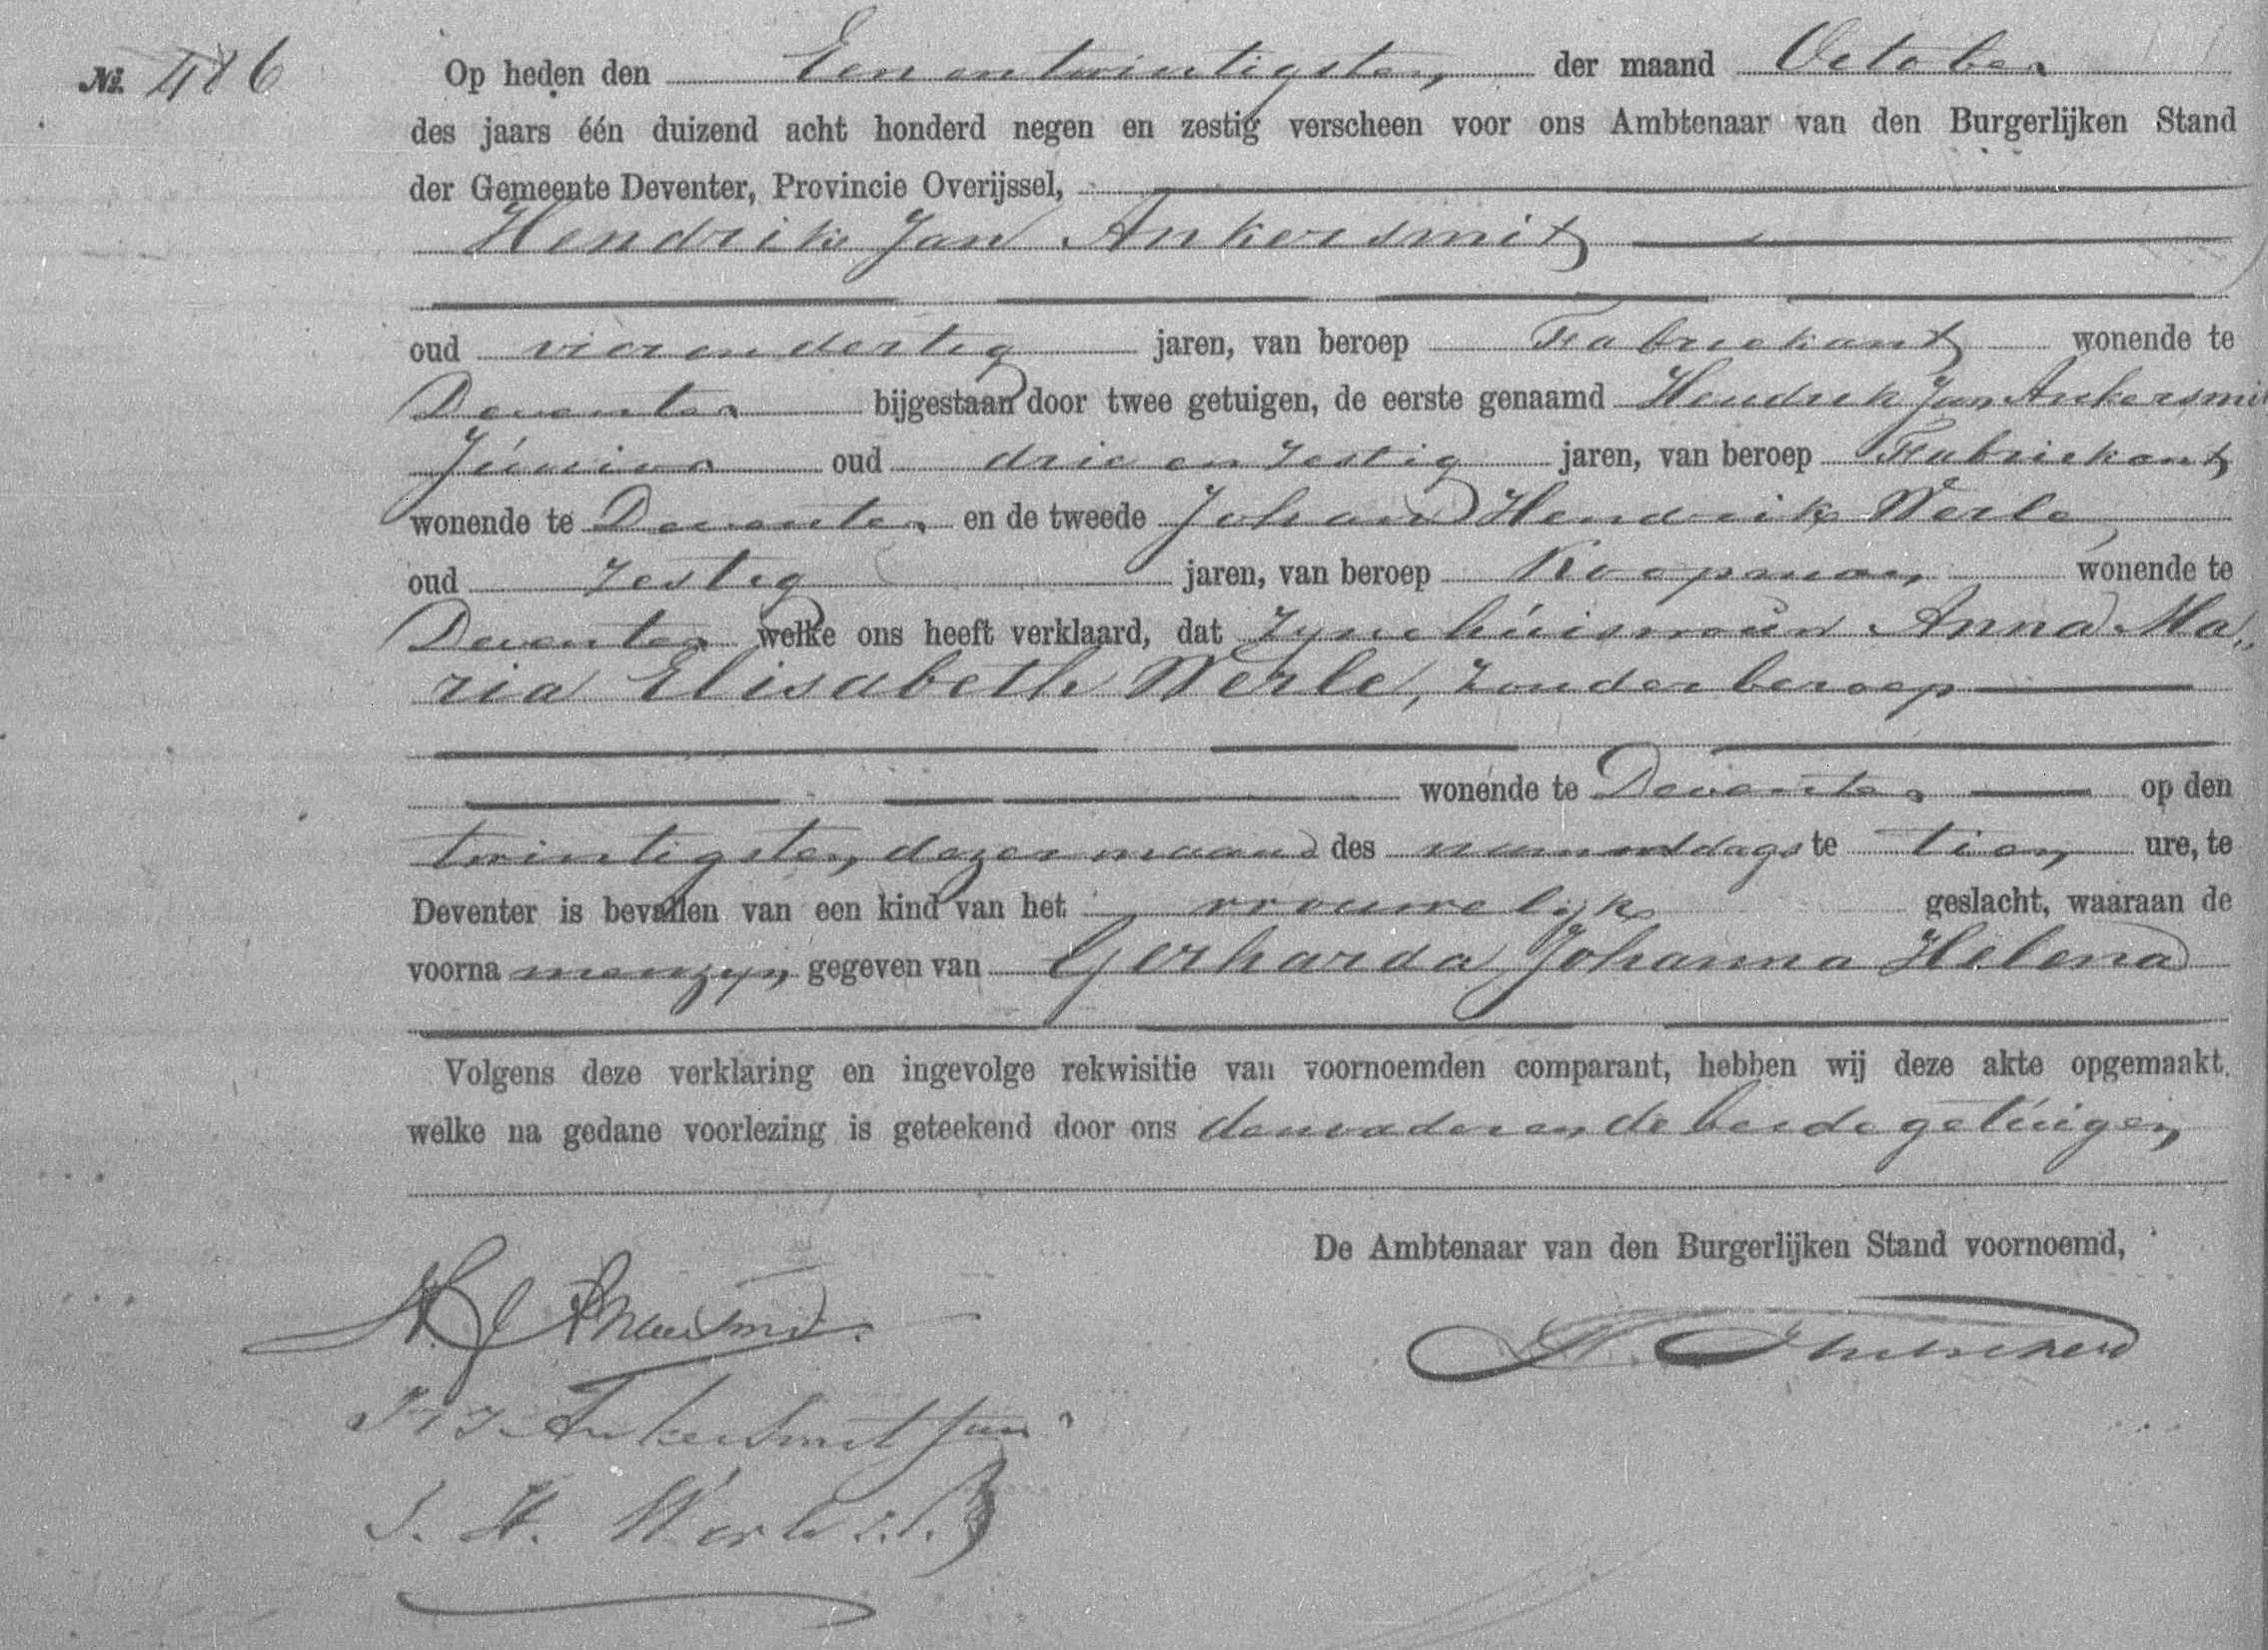 No. 486
Op heden den Een en twintigsten der maand October
des jaars één duizend acht honderd negen en zestig verscheen voor ons Ambtenaar van den Burgerlijken Stand
der Gemeente Deventer, Provincie Overijssel,
Hendrik Jan Ankersmit
oud vier en dertig jaren, van beroep Fabriekant wonende te
Deventer bijgestaan door twee getuigen, de eerste genaamd Hendrik Jan Ankersmit
Júnior oud drie en zestig jaren, van beroep Fabriekant
wonende te Deventer en de tweede Johan Hendrik Werle
oud zestig jaren, van beroep Koopman wonende te
Deventer welke ons heeft verklaard, dat zyne húisvroúw Anna Ma„
ria Elisabeth Werle, zonder beroep
wonende te Deventer op den
twintigsten dezer maand des namiddags te tien ure, te
Deventer is bevallen van een kind van het vrouwelijk geslacht, waaraan de
voorna men zyn gegeven van Gerharda Johanna Helena
Volgens deze verklaring en ingevolge rekwisitie van voornoemden comparant, hebben wij deze akte opgemaakt,
welke na gedane voorlezing is geteekend door ons den vader en de beide getúigen
De Ambtenaar van den Burgerlijken Stand voornoemd,
H J Ankersmit
H J Ankersmit Jun
J. H. Werle